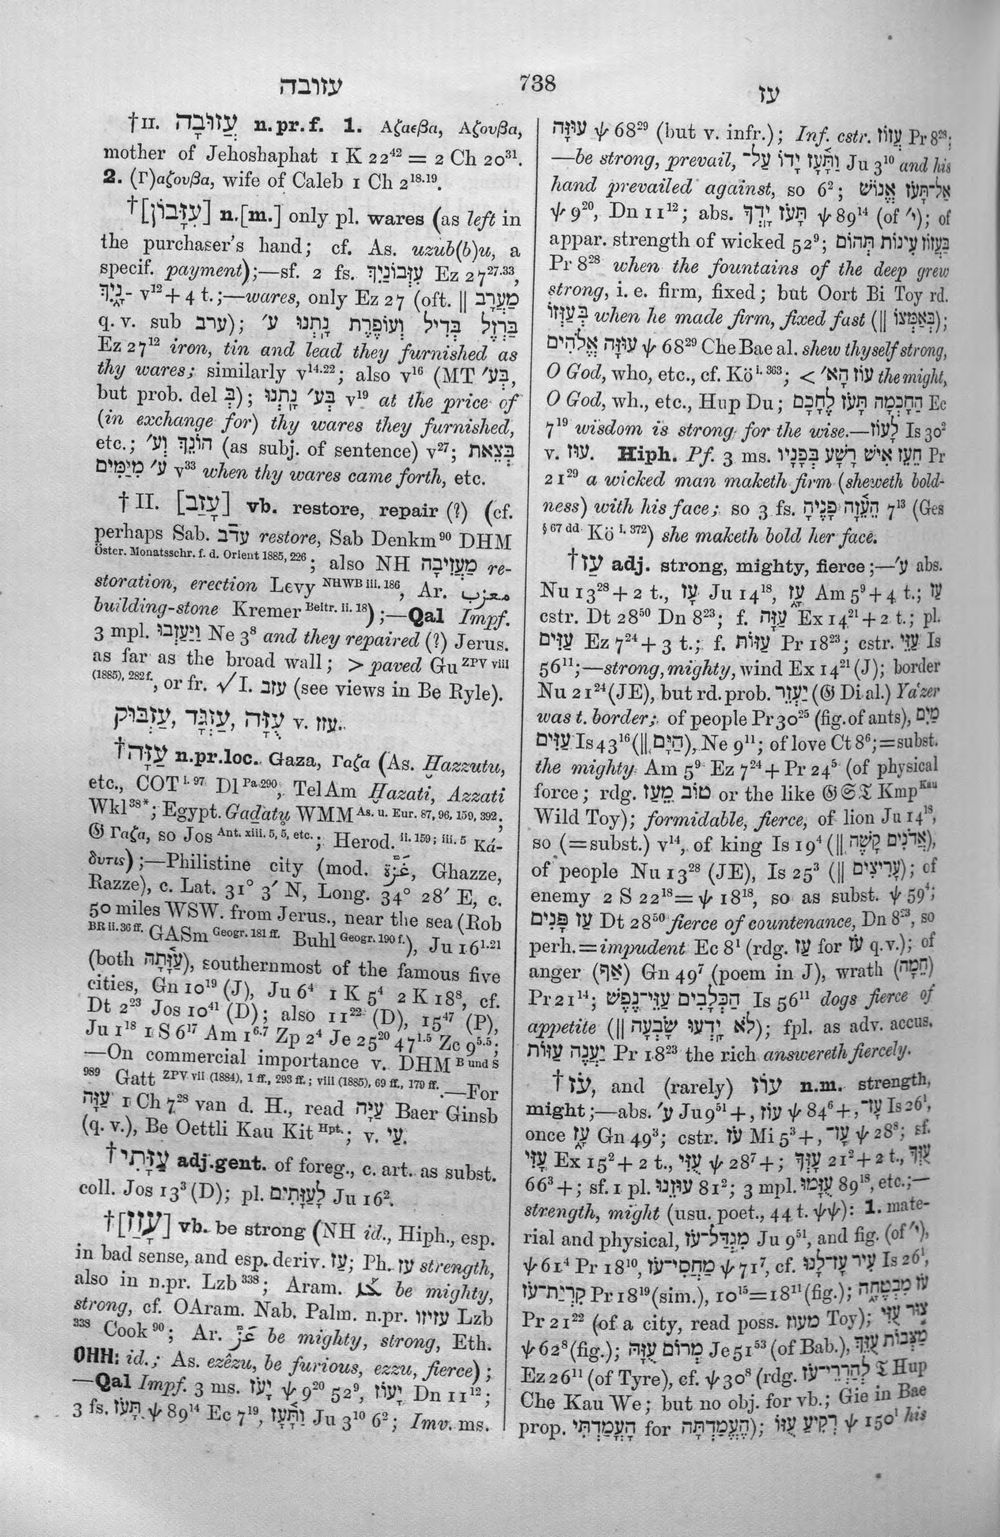 עזובה
738
עז
†II. עֲזוּבָה n.pr.f. 1. Αζαεβα, Αζουβα,
mother of Jehoshaphat 1 K 22⁴² = 2 Ch 20³¹.
2. (Γ)αζουβα, wife of Caleb 1 Ch 2¹⁸·¹⁹.
†[עִזָּבוֹן] n.[m.] only pl. wares (as left in
the purchaser's hand; cf. As. uzub(b)u, a
specif. payment);—sf. 2 fs. עִזְבוֹנַיִךְ Ez 27²⁷·³³,
נָ֑יִךְ- v¹² + 4 t.;—wares, only Ez 27 (oft. ‖ מַעֲרָב
q.v. sub ערב); בַּרְזֶל בְּדִיל וְעוֹפֶרֶת נָתְנוּ ע׳
Ez 27¹² iron, tin and lead they furnished as
thy wares; similarly v¹⁴·²²; also v¹⁶ (MT בְּע׳,
but prob. del בְּ); בְּע׳ נָתָ֑נוּ v¹⁹ at the price of
(in exchange for) thy wares they furnished,
etc.; הוֹנֵךְ וְע׳ (as subj. of sentence) v²⁷; בְּצֵאת
ע׳ מִיַּמִּים v³³ when thy wares came forth, etc.
†II. [עָזַב] vb. restore, repair (?) (cf.
perhaps Sab. עדב restore, Sab Denkm⁹⁰ DHM
Öster. Monatsschr. f. d. Orient 1885, 226; also NH מַעֲזֵיבָה re-
storation, erection Levy NHWB iii. 186, Ar. معزب
building-stone Kremer Beitr. ii. 18);—Qal Impf.
3 mpl. וַיַּעַזְבוּ Ne 3⁸ and they repaired (?) Jerus.
as far as the broad wall; > paved Gu ZPV viii
(1885), 282 f., or fr. √I. עזב (see views in Be Ryle).
עַזְבּוּק, עַזְגָּד, עֻזָּה v. עזז.
†עַזָּה n.pr.loc. Gaza, Γαζα (As. Ḫazzutu,
etc., COT I. 97 Dl Pa 290, TelAm Ḫazati, Azzati
Wkl³⁸*; Egypt. Gaḏatu WMM As. u. Eur. 87, 96, 159, 392;
𝔊 Γαζα, so Jos Ant. xiii. 5, 5, etc.; Herod. ii. 159; iii. 5 Κά-
δυτις);—Philistine city (mod. غَزَّة, Ghazze,
Razze), c. Lat. 31° 3′ N, Long. 34° 28′ E, c.
50 miles WSW. from Jerus., near the sea (Rob
BR ii. 36 ff. GASm Geogr. 181 ff. Buhl Geogr. 190 f.), Ju 16¹·²¹
(both עַזָּ֫תָה), southernmost of the famous five
cities, Gn 10¹⁹ (J), Ju 6⁴ 1 K 5⁴ 2 K 18⁸, cf.
Dt 2²³ Jos 10⁴¹ (D); also 11²² (D), 15⁴⁷ (P),
Ju 1¹⁸ 1 S 6¹⁷ Am 1⁶·⁷ Zp 2⁴ Je 25²⁰ 47¹·⁵ Zc 9⁵·⁵;
—On commercial importance v. DHM B und S
989 Gatt ZPV vii (1884), 1 ff., 293 ff.; viii (1885), 69 ff., 179 ff.—For
עַזָּה 1 Ch 7²⁸ van d. H., read עַיָּה Baer Ginsb
(q.v.), Be Oettli Kau Kit Hpt.; v. עַי.
†עַזָּתִי adj.gent. of foreg., c. art. as subst.
coll. Jos 13³ (D); pl. לָעַזָּתִים Ju 16².
†[עָזַז] vb. be strong (NH id., Hiph., esp.
in bad sense, and esp. deriv. עַז; Ph. עז strength,
also in n.pr. Lzb³³⁸; Aram. be mighty,
strong, cf. OAram. Nab. Palm. n.pr. עזיזו Lzb
338 Cook⁹⁰; Ar. عَزَّ be mighty, strong, Eth.
id.; As. ezêzu, be furious, ezzu, fierce);
—Qal Impf. 3 ms. יָעֹז ψ 9²⁰ 52⁹, יָעוֹז Dn 11¹²;
3 fs. תָּעֹז ψ 89¹⁴ Ec 7¹⁹, וַתָּ֫עָז Ju 3¹⁰ 6²; Imv. ms.
עוּזָּה ψ 68²⁹ (but v. infr.); Inf. cstr. עֲזוֹז Pr 8²⁸;
—be strong, prevail, וַתָּ֫עָז יָדוֹ עַל־ Ju 3¹⁰ and his
hand prevailed against, so 6²; אַל־יָעֹז אֱנוֹשׁ
ψ 9²⁰, Dn 11¹²; abs. תָּעֹז יָדְךָ ψ 89¹⁴ (of י׳); of
appar. strength of wicked 52⁹; בַּעֲזוֹז עִינוֹת תְּהוֹם
Pr 8²⁸ when the fountains of the deep grew
strong, i.e. firm, fixed; but Oort Bi Toy rd.
בְּעַזְּזוֹ when he made firm, fixed fast (‖ בְּאַמְּצוֹ);
עוּזָּה אֱלֹהִים ψ 68²⁹ Che Bae al. shew thyself strong,
O God, who, etc., cf. Kö I. 363; < עוֹז הָא׳ the might,
O God, wh., etc., Hup Du; הַחָכְמָה תָּעֹז לֶחָכָם Ec
7¹⁹ wisdom is strong for the wise.—לָעוֹז Is 30²
v. עוז. Hiph. Pf. 3 ms. הֵעֵז אִישׁ רָשָׁע בְּפָנָיו Pr
21²⁹ a wicked man maketh firm (sheweth bold-
ness) with his face; so 3 fs. הֵעֵ֫זָה פָנֶיהָ 7¹³ (Ges
§ 67 dd Kö I. 372) she maketh bold her face.
†עַז adj. strong, mighty, fierce;—ע׳ abs.
Nu 13²⁸ + 2 t., עָז Ju 14¹⁸, עָ֑ז Am 5⁹ + 4 t.; עַז
cstr. Dt 28⁵⁰ Dn 8²³; f. עַזָּה Ex 14²¹ + 2 t.; pl.
עַזִּים Ez 7²⁴ + 3 t.; f. עַזּוֹת Pr 18²³; cstr. עַזֵּי Is
56¹¹;—strong, mighty, wind Ex 14²¹ (J); border
Nu 21²⁴ (JE), but rd. prob. יַעְזֵר (𝔊 Di al.) Ya'zer
was t. border; of people Pr 30²⁵ (fig. of ants), מַיִם
עַזִּים Is 43¹⁶ (‖ הַיָּם), Ne 9¹¹; of love Ct 8⁶; = subst.
the mighty Am 5⁹ Ez 7²⁴ + Pr 24⁵ (of physical
force; rdg. טוֹב מֵעַז or the like 𝔊 𝔖 𝔗 Kmp Kau
Wild Toy); formidable, fierce, of lion Ju 14¹⁸,
so (= subst.) v¹⁴, of king Is 19⁴ (‖ אֲדֹנִים קָשֶׁה),
of people Nu 13²⁸ (JE), Is 25³ (‖ עָרִיצִים); of
enemy 2 S 22¹⁸ = ψ 18¹⁸, so as subst. ψ 59⁴;
עַז פָּנִים Dt 28⁵⁰ fierce of countenance, Dn 8²³, so
perh. = impudent Ec 8¹ (rdg. עַז for עֹז q.v.); of
anger (אַף) Gn 49⁷ (poem in J), wrath (חֵמָה)
Pr 21¹⁴; הַכְּלָבִים עַזֵּי־נֶפֶשׁ Is 56¹¹ dogs fierce of
appetite (‖ לֹא יָדְעוּ שָׂבְעָה); fpl. as adv. accus.
יַעֲנֶה עַזּוֹת Pr 18²³ the rich answereth fiercely.
†עֹז, and (rarely) עוֹז n.m. strength,
might;—abs. ע׳ Ju 9⁵¹ +, עוֹז ψ 84⁶ +, עָז־ Is 26¹,
once עָ֑ז Gn 49³; cstr. עֹז Mi 5³ +, עָז־ ψ 28⁸; sf.
עָזִּי Ex 15² + 2 t., עֻזִּי ψ 28⁷ +; עָזְּךָ 21² + 2 t., עֻזְּךָ
66³ +; sf. 1 pl. עוּזֵּנוּ 81²; 3 mpl. עֻזָּמוֹ 89¹⁸, etc.;—
strength, might (usu. poet., 44 t. ψψ): 1. mate-
rial and physical, מִגְדַּל־עֹז Ju 9⁵¹, and fig. (of י׳),
ψ 61⁴ Pr 18¹⁰, מַחֲסִי־עֹז ψ 71⁷, cf. עִיר עָז־לָנוּ Is 26¹,
קִרְיַת־עֹז Pr 18¹⁹ (sim.), 10¹⁵ = 18¹¹ (fig.); עֹז מִבְטֶחָה
Pr 21²² (of a city, read poss. מעוז Toy); צוּר עֻזִּי
ψ 62⁸ (fig.); מְרוֹם עֻזָּהּ Je 51⁵³ (of Bab.), מַצְּבוֹת עֻזֵּךְ
Ez 26¹¹ (of Tyre), cf. ψ 30⁸ (rdg. לְהַרְרֵי־עֹז 𝔗 Hup
Che Kau We; but no obj. for vb.; Gie in Bae
prop. הֶעֱמַדְתִּי for הֶעֱמַדְתָּה); רְקִיעַ עֻזּוֹ ψ 150¹ his